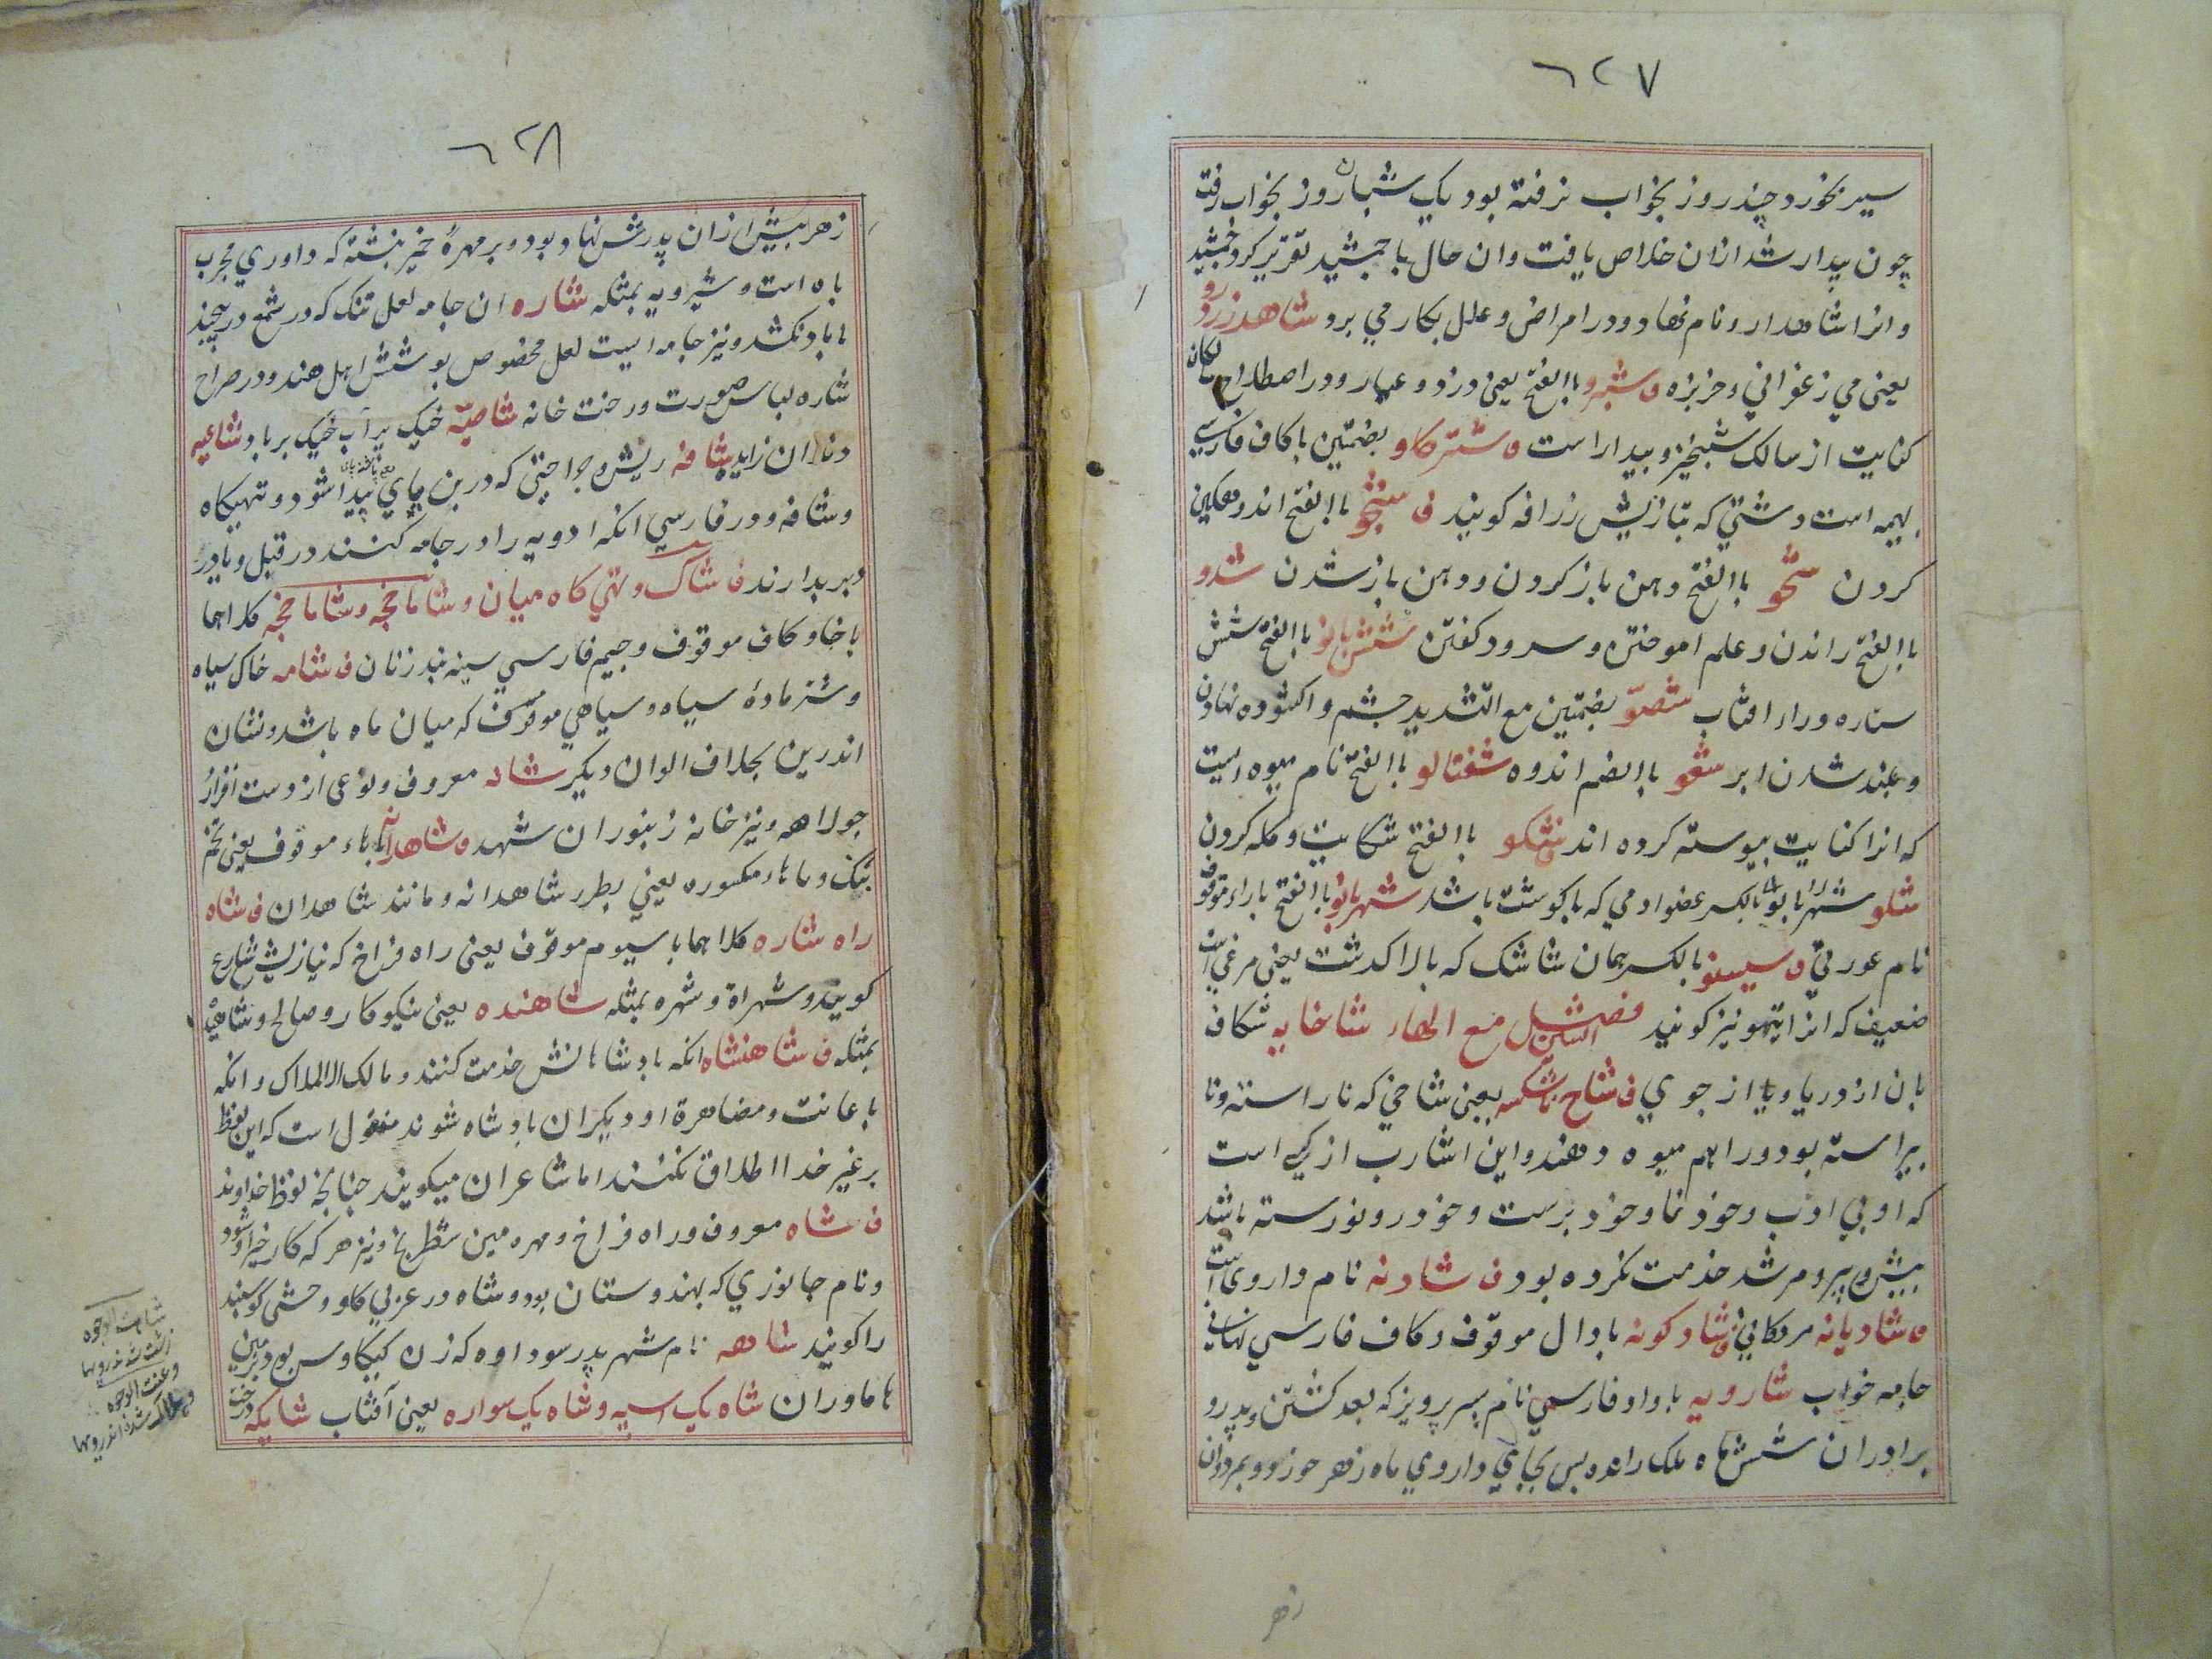 ٦٢٧
سیر نخورد چند روز بخواب نرفته بود یک شبان روز بخواب رفت
چون بیدار شد ازان خلاص یافت وان حال با جمشید تقریر کرد جمشید
وانرا شاهدارو نام نهاد ودر امراض وعلل بکار می برد شاهد زرد رو
یعنی می زعفرانی وخربزه ف شبرو باالفتح یعنی دزد وعیار ودر اصطلاح
کنایت از سالک شبخیز وبیدار است ف شترکاو بضمتین با کاف فارسی
بهیمه است دشتی که بتازیش زرافه کویند ف باالفتح اندوهکین
کردن شحو باالفتح دهن باز کردن ودهن باز شدن شدو
باالفتح راندن وعلم اموختن وسرود کفتن شش بانو باالفتح شش
ستاره ورای افتاب شصوّ بضمتین مع التشدید چشم واکشوده نهادن
وبلند شدن ابر باالضم اندوه شفتالو باالفتح نام میوه ایست
که انرا کنایت ببوسه کرده اند شکو باالفتح شکایت وکله کردن
شلو بالکسر عضو ادمی که باکوشت باشد شهربانو باالفتح باراء موقوف
نام عورتی ف بالکسر همان شاشک که بالا کدشت یعنی مرغی است
ضعیف که انرا تیهو نیز کویند فصل الشین مع الهاء شاخابه شکاف
بان از دریا ویا از جوی ف شاخ یعنی شاخی که ناراسته ونا
پیراسته بود ورا هم میوه دهند واین اشارت از کسی است
که او بی ادب وخود نما وخود پرست وخود رو نورسته باشد
پیش پیر ومرشد خدمت نکرده بود ف شادنه نام داروی است
ف شادیانه مژدکانی ف شادکونه بادال موقوف وکاف فارسی نهانی
جامه خواب شارویه باواو فارسی نام پسر پرویز که بعد کشتن پدر و
برادران شش ماه ملک رانده پس بجای داروی باه زهر خورد وبمرد وان
زهر
٦٢٨
زهر پیش ازان پدرش نهاده بود وبر مهرهٔ خمیر بنشته که داوری مجرب
باه است وشیرویه بمثله شاره ان جامه لعل تنک که در شمع در پیچند
تا باد نکشد ونیز جامه ایست لعل مخصوص بوشش اهل هند ودر صراح
شاره لباس صورت ورخت خانه شاصیّه خیک پر آب خیک بر باد شاعیه
دندان زاید شافه ریش وجراحتی که در بن پای پیدا شود وتهیکاه
وشافه ودر فارسی انکه ادویه را در جامه کنند در قبل ویا در
دبر بدارند ف شاک وتهی کاه میان وشاماخچه وشاماکچه کلاهما
با خا وکاف موقوف وجیم فارسی سینه بند زنان ف شامه خال سیاه
وشتر مادهٔ سیاه وسیاهی موقوف که میان ماه باشد ونشان
اندرین بخلاف الوان دیکر شانه معروف ونوعی از دست افزار
جولاهه ونیز خانه زنبوران شهد ف شاهدانه باهاء موقوف یعنی تخم
بنک وباهاء مکسوره یعنی بطرز شاهدانه ومانند شاهدان ف شاه
راه شاره کلاهما با سیوم موقوف یعنی راه فراخ که بتازیش شارع
کویند وشهراه وشهره بمثله شاهنده یعنی نیکو کار وصالح وشاهیده
بمثله ف شاهنشاه انکه بادشاهانش خدمت کنند ومالک الاملاک وانکه
باعانت ومضاهرة او دیکران بادشاه شوند منقول است که این لفظ
بر غیر خدا اطلاق نکنند اما شاعران میکویند چنانچه لفظ خداوند
ف شاه معروف وراه فراخ ومهره مهین شطرنج ونیز هر که کار خیر ازو شود
ونام جانوری که بهندوستان بود وشاه در عربی کاو وحشی کوسپند
را کویند شاهه نام شهر پدر سوداوه که زن کیکاوس بود برزمین
هاماوران شاه یک اسپه وشاه یک سواره یعنی آفتاب شایکه درخت
شاهت الوجوه
زشت شد رویها
وعنت الوجوه